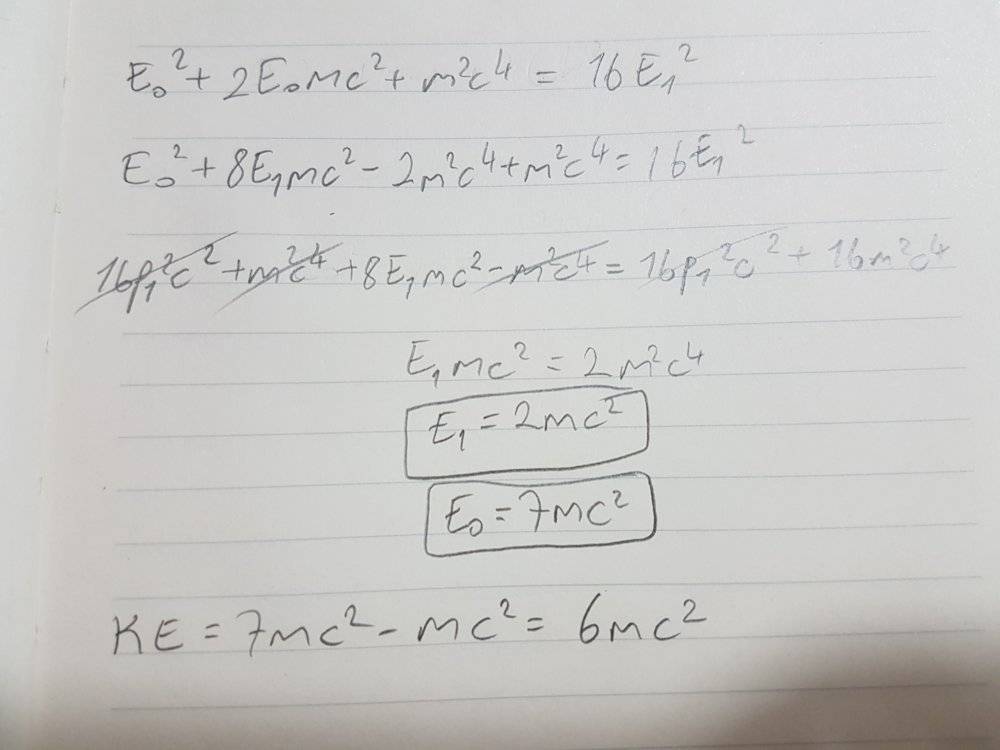 E₀² + 2E₀mc² + m²c⁴ = 16E₁²
E₀² + 8E₁mc² - 2m²c⁴ + m²c⁴ = 16E₁²
16p₁²c² + m²c⁴ + 8E₁mc² - m²c⁴ = 16p₁²c² + 16m²c⁴
E₁mc² = 2m²c⁴
E₁ = 2mc²
E₀ = 7mc²
KE = 7mc² - mc² = 6mc²